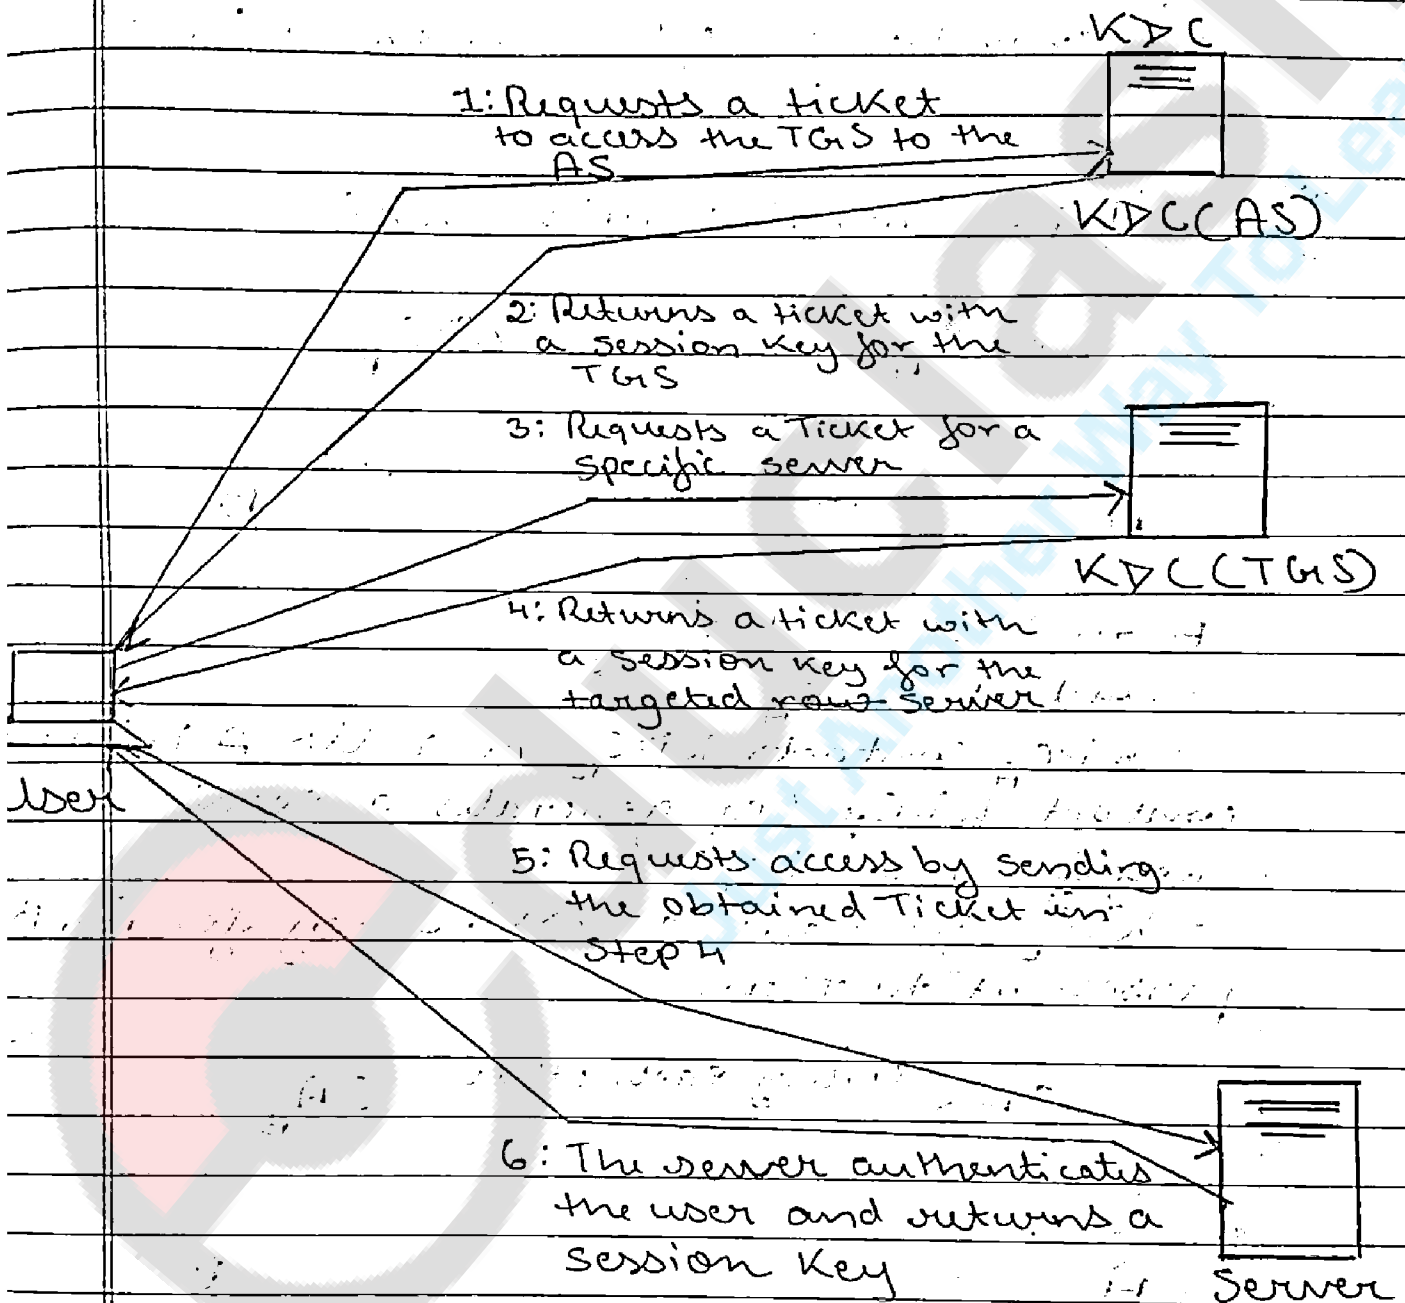 KDC
1: Requests a ticket
to access the TGS to the
AS
KDC(AS)
2: Returns a ticket with
a session key for the
TGS
3: Requests a Ticket for a
specific server
KDC(TGS)
4: Returns a ticket with
a session key for the
targeted server
User
5: Requests access by sending
the obtained Ticket in
Step 4
6: The server authenticates
the user and returns a
session key
Server
educlash
Just Another Way To Lea